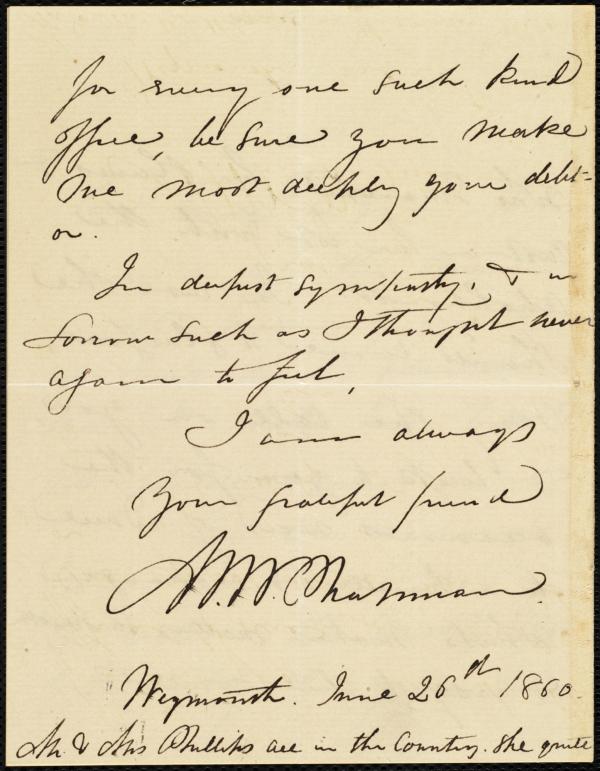 for every one such kind
office, be sure you make
me most deeply your debt-
or.
In deepest sympathy, & in
sorrow such as I thought never
again to feel,
I am always
Your grateful friend
M. W. Chapman.
Weymouth. June 26th 1860.
Mr & Mrs Phillips are in the Country. She quite